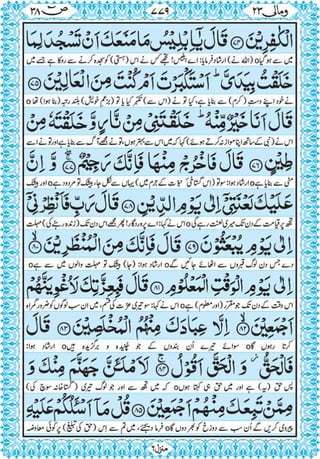 ومالى ۲۳ ۷۷۹ صٓ ۳۸
الْكٰفِرِيْنَ ﴿۷۴﴾ قَالَ يٰۤاِبْلِيْسُ مَا مَنَعَكَ اَنْ تَسْجُدَ لِمَا
میں سے ہو گیا o (اللہ نے) ارشاد فرمایا: اے ابلیس! تجھے کس نے اس (ہستی) کو سجدہ کرنے سے روکا ہے جسے
خَلَقْتُ بِيَدَيَّ ؕ اَسْتَكْبَرْتَ اَمْ كُنْتَ مِنَ الْعَالِيْنَ ﴿۷۵﴾
میں نے خود اپنے دستِ (کرم) سے بنایا ہے، کیا تو نے (اس سے) تکبّر کیا یا تو (بزعمِ خویش) بلند رتبہ (بنا ہوا) تھا o
قَالَ اَنَا خَيْرٌ مِّنْهُ ؕ خَلَقْتَنِيْ مِنْ نَّارٍ وَّ خَلَقْتَهٗ مِنْ
کہا کہ میں اس سے بہتر ہوں، تو نے مجھے آگ سے بنایا ہے اور تو نے اسے
طِيْنٍ ﴿۷۶﴾ قَالَ فَاخْرُجْ مِنْهَا فَاِنَّكَ رَجِيْمٌ ﴿۷۷﴾ وَّ اِنَّ
مٹی سے بنایا ہے o ارشاد ہوا: سو تو یہاں سے نکل جا، بیشک تو مردود ہے o اور بیشک
عَلَيْكَ لَعْنَتِيْۤ اِلٰى يَوْمِ الدِّيْنِ ﴿۷۸﴾ قَالَ رَبِّ فَاَنْظِرْنِيْۤ
تجھ پر قیامت کے دن تک میری لعنت رہے گی o اس نے کہا: اے پروردگار! پھر مجھے اس دن تک (زندہ رہنے کی) مہلت
اِلٰى يَوْمِ يُبْعَثُوْنَ ﴿۷۹﴾ قَالَ فَاِنَّكَ مِنَ الْمُنْظَرِيْنَ ﴿۸۰﴾
دے جس دن لوگ قبروں سے اٹھائے جائیں گے o ارشاد ہوا: (جا) بیشک تو مہلت والوں میں سے ہے o
اِلٰى يَوْمِ الْوَقْتِ الْمَعْلُوْمِ ﴿۸۱﴾ قَالَ فَبِعِزَّتِكَ لَاُغْوِيَنَّهُمْ
اس وقت کے دن تک جو مقرّر (اور معلوم) ہے o اس نے کہا: سو تیری عزّت کی قسم، میں ان سب لوگوں کو ضرور گمراہ
اَجْمَعِيْنَ ﴿۸۲﴾ اِلَّا عِبَادَكَ مِنْهُمُ الْمُخْلَصِيْنَ ﴿۸۳﴾ قَالَ
کرتا رہوں گا o سوائے تیرے اُن بندوں کے جو چنیدہ و برگزیدہ ہیں o ارشاد ہوا:
فَالْحَقُّ ؗ وَ الْحَقَّ اَقُوْلُ ﴿۸۴﴾ لَاَمْلَئَنَّ جَهَنَّمَ مِنْكَ وَ
پس حق (یہ) ہے اور میں حق ہی کہتا ہوں o کہ میں تجھ سے اور جو لوگ تیری (گستاخانہ سوچ کی)
مِمَّنْ تَبِعَكَ مِنْهُمْ اَجْمَعِيْنَ ﴿۸۵﴾ قُلْ مَاۤ اَسْئَلُكُمْ عَلَيْهِ
پیروی کریں گے اُن سب سے دوزخ کو بھر دوں گا o فرما دیجئے: میں تم سے اِس (حق کی تبلیغ) پر کوئی معاوضہ
منزل ۶